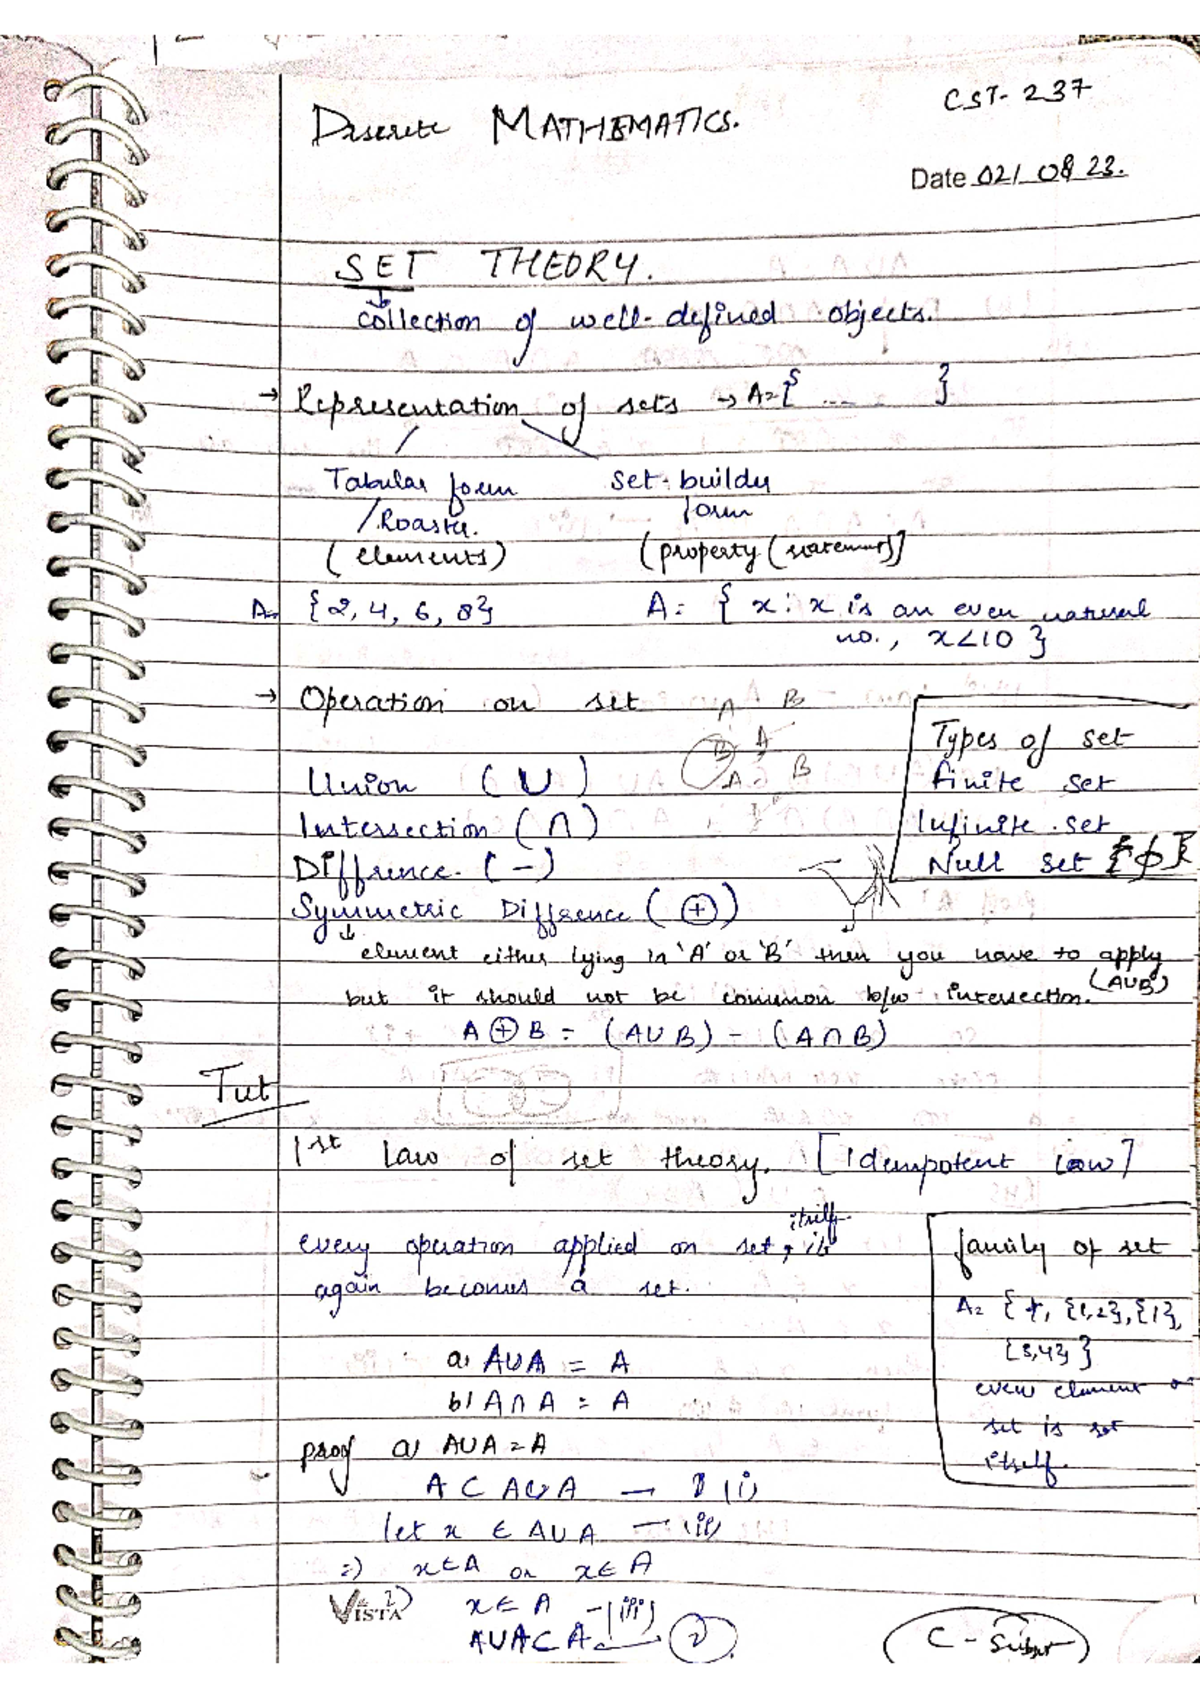 CST-237
Discrete MATHEMATICS.
Date 02/ 08 23.
SET THEORY.
collection of well-defined objects.
→ Representation of sets → A={ ... }
Tabular form set-builder
/Roaster. form
(elements) (property (statement)]
A= {2, 4, 6, 8} A= { x : x is an even natural
no., x<10 }
→ Operation on set
A B
B A
A B
Union (∪)
Intersection (∩)
Diffrence. (-)
Symmetric Diffrence (⊕)
Types of set
finite set
Infinite set
Null set {ϕ}
↓ element either lying in 'A' or 'B' then you have to apply
(A∪B)
but it should not be common b/w intersection.
A ⊕ B = (A∪B) - (A∩B)
Tut
1st law of set theory. [Idempotent law]
itself
every operation applied on set,
again becomes a set.
a) A∪A = A
b) A∩A = A
family of set
A= { {1,2}, {1},
{3,4} }
every element of
set is set
itself.
proof a) A∪A=A
A ⊂ A∪A → (i)
let x ∈ A∪A → (ii)
⇒) x∈A or x∈A
VISTA
x∈A -(iii)
A∪A⊂A 2
⊂ - Subset